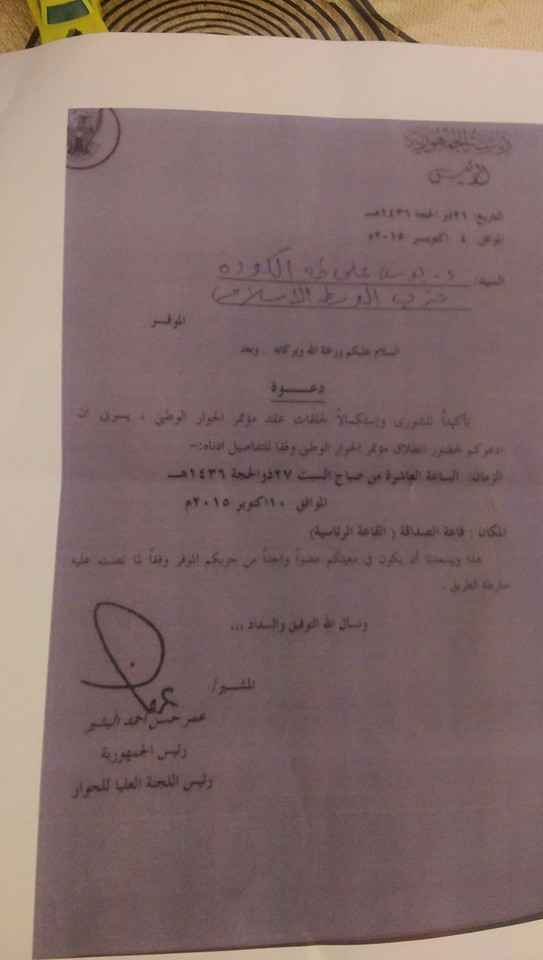 رئاسة الجمهورية
الرئيس
التاريخ: ٢١ ذو الحجة ١٤٣٦هـ
الموافق: ٤ اكتوبر ٢٠١٥م
السيد/ د. يوسف على طه الكوده
حزب الوسط الاسلامى
الموقـر
السلام عليكم ورحمة الله وبركاته .. وبعد
دعـــوة
تأكيداً للشورى وإستكمالاً لحلقات عقد مؤتمر الحوار الوطني ، يسرني ان
ادعوكم لحضور انطلاق مؤتمر الحوار الوطني وفقا للتفاصيل ادناه:-
الزمان: الساعة العاشرة من صباح السبت ٢٧ ذوالحجة ١٤٣٦هـ
الموافق ١٠ اكتوبر ٢٠١٥م
المكان : قاعة الصداقة ( القاعة الرئاسية)
هذا ويسعدنا أن يكون في معيتكم عضواً واحداً من حزبكم الموقر وفقاً لما نصت عليه
خارطة الطريق .
ونسأل الله التوفيق والسداد ،،،
المشــير/
عمر حسن احمد البشير
رئيس الجمهورية
رئيس اللجنة العليا للحوار